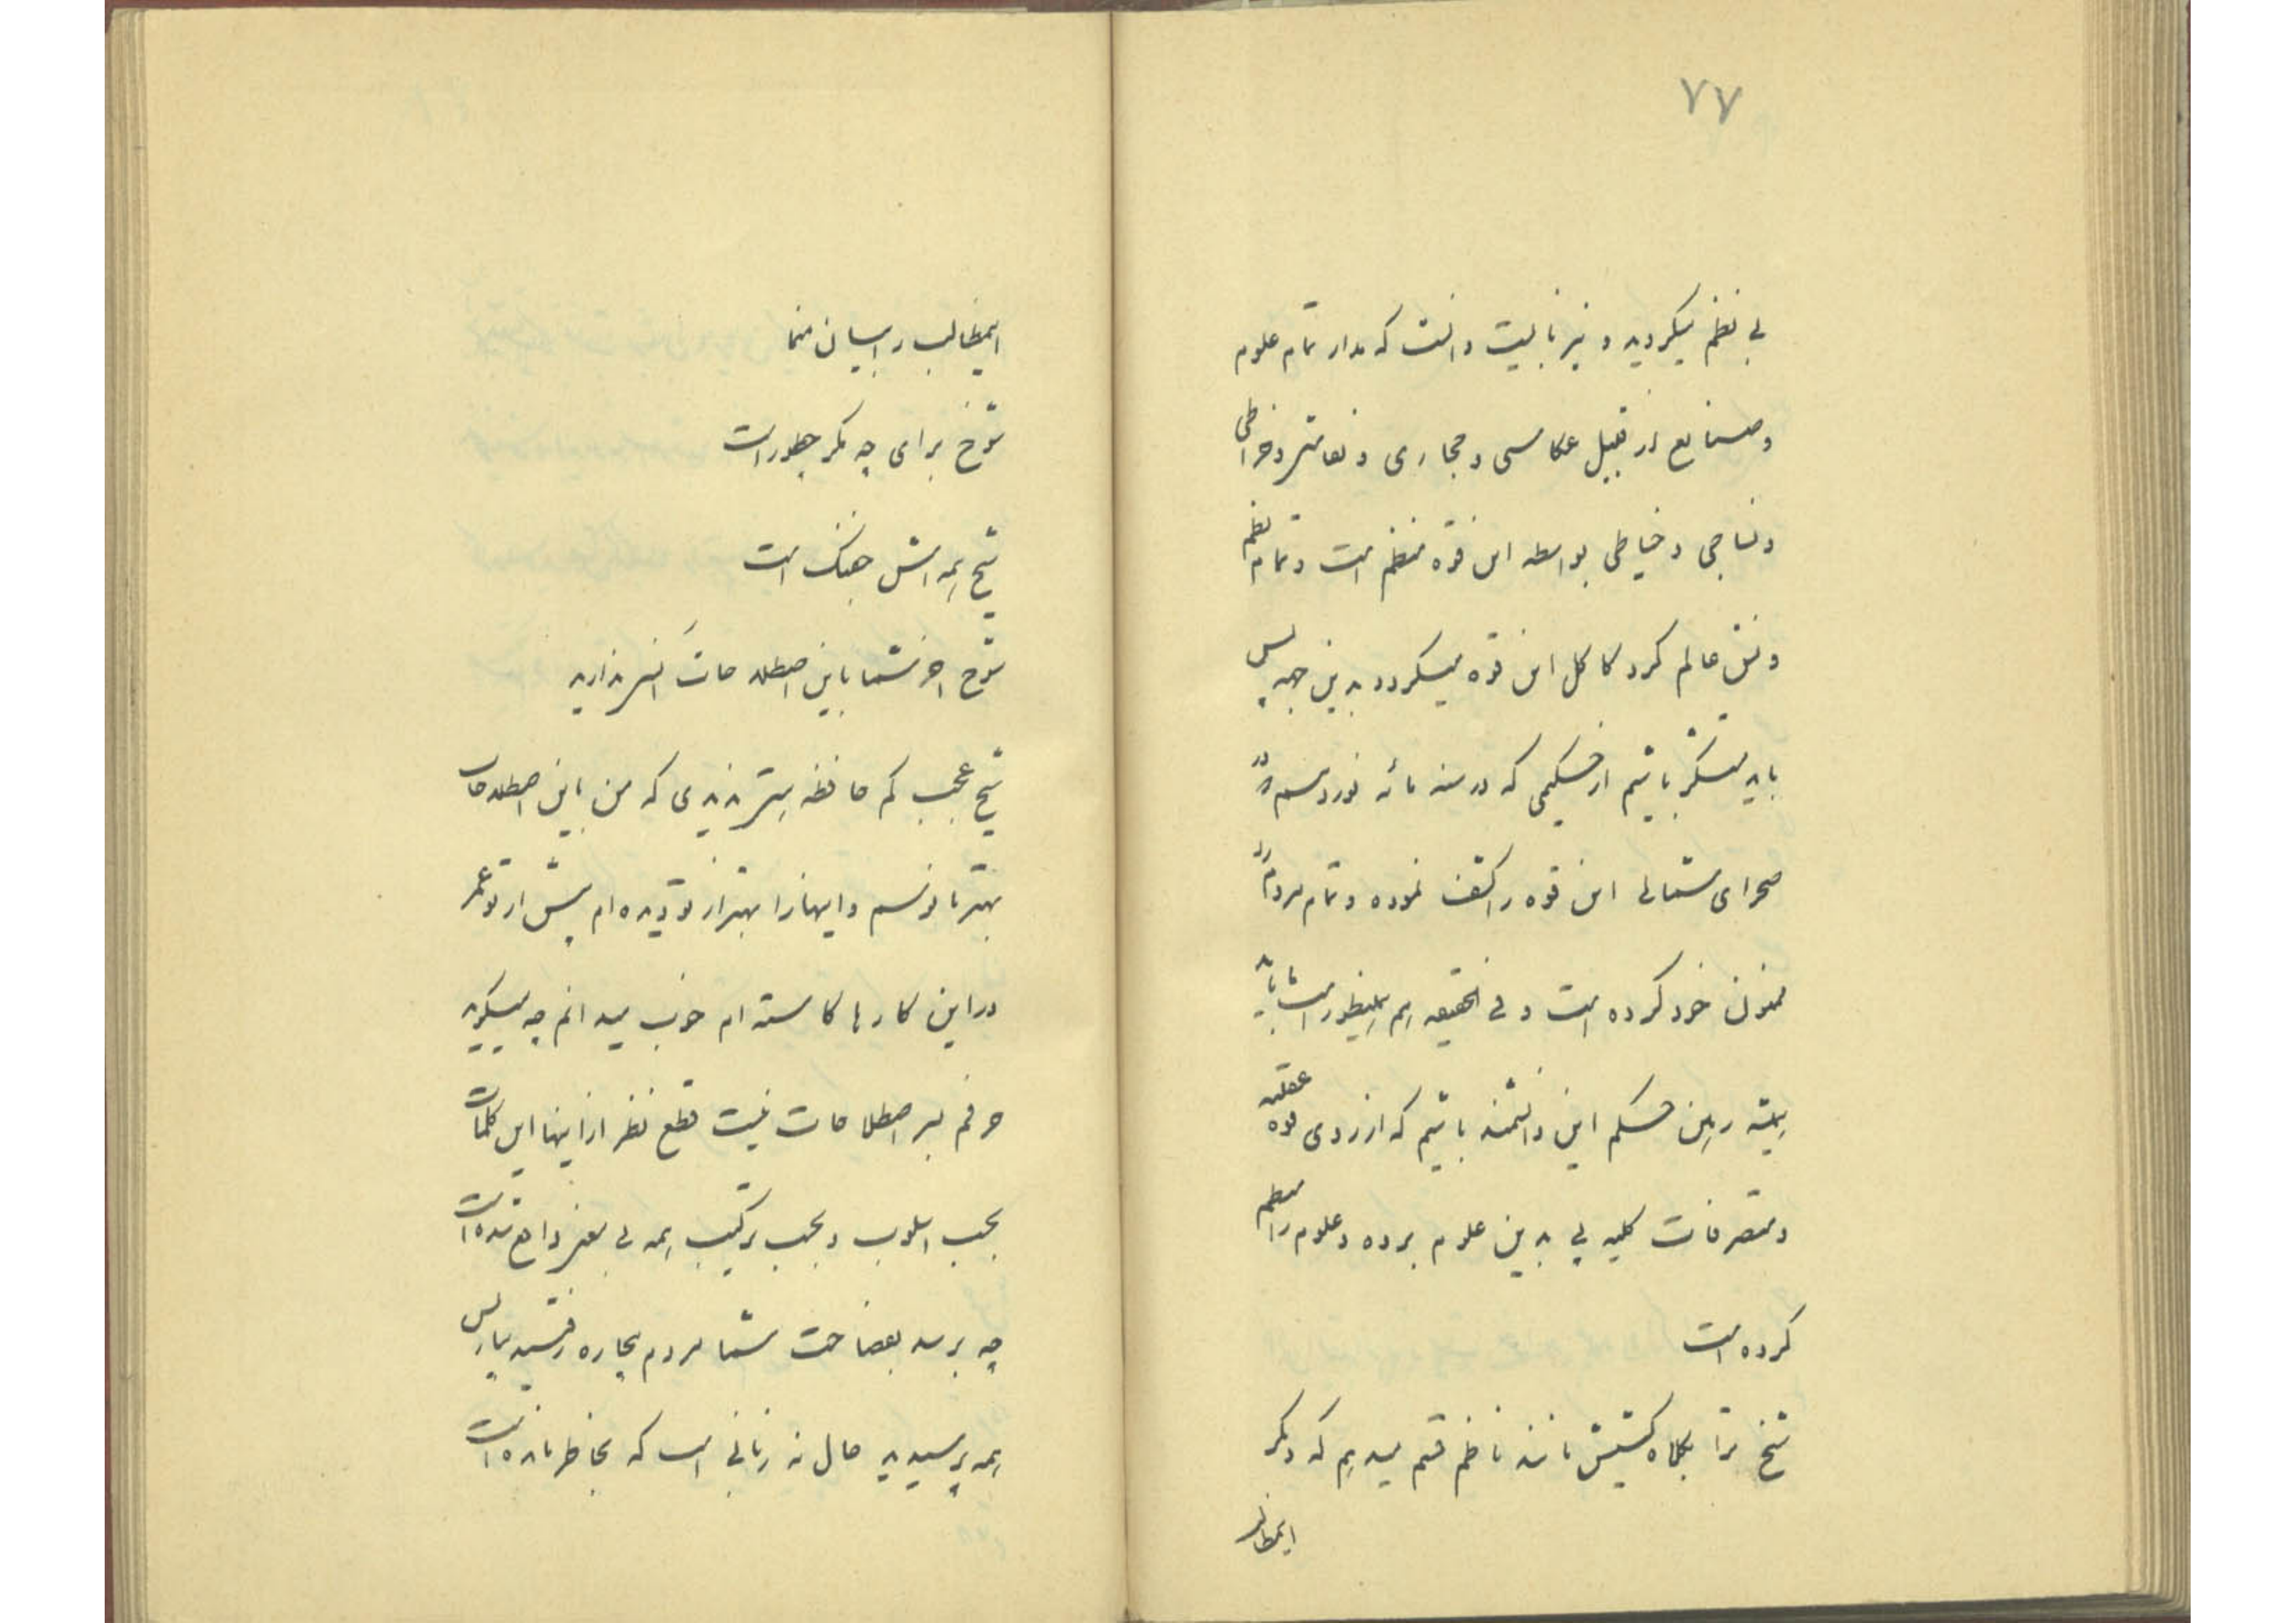 ٧٧
بی نظم میگردید و نیز بایست دانست که مدار تمام علوم
و صنایع از قبیل عکاسی و حجاری و نقاشی و خراطی
و نساجی و خیاطی بواسطه این قوه منظم است و تمام نظم
و نسق عالم گرد کاکل این قوه میگردد بدین جهه پس
باید متشکر باشیم از حکیمی که در سنه مائه نوردسم در
صحرای شمالی این قوه را کشف نموده و تمام مردم را
ممنون خود کرده است و فی الحقیقه هم همینطور است باید
همیشه رهین حکم این دانشمند باشیم که از روی قوه عقلیه
و متصرفات کلیه پی بدین علوم برده و علوم را منظم
کرده است
شیخ ترا بکلاه کشیش ناظم قسم میدهم که دیگر
اینمطالب
اینمطالب را بیان منما
شوخ برای چه مگر چطور است
شیخ همه اش جفنگ است
شوخ آخر شما باین اصطلاحات انس ندارید
شیخ عجب کم حافظه هستی ندیدی که من باین اصطلاحات
بهتر مانوسم و اینها را بهتر از تو دیده ام پیش از تو عمر
در این کارها کاسته ام خوب میدانم چه میگوید
حرفم بر اصطلاحات نیست قطع نظر از اینها این کلمات
بحسب اسلوب و بحسب ترکیب همه بی معنی واقع شده است
چه برسد بفصاحت شما مردم بیچاره رفتید پاریس
همه پرسیدید حال نه زبانی است که بخاطر مانده است